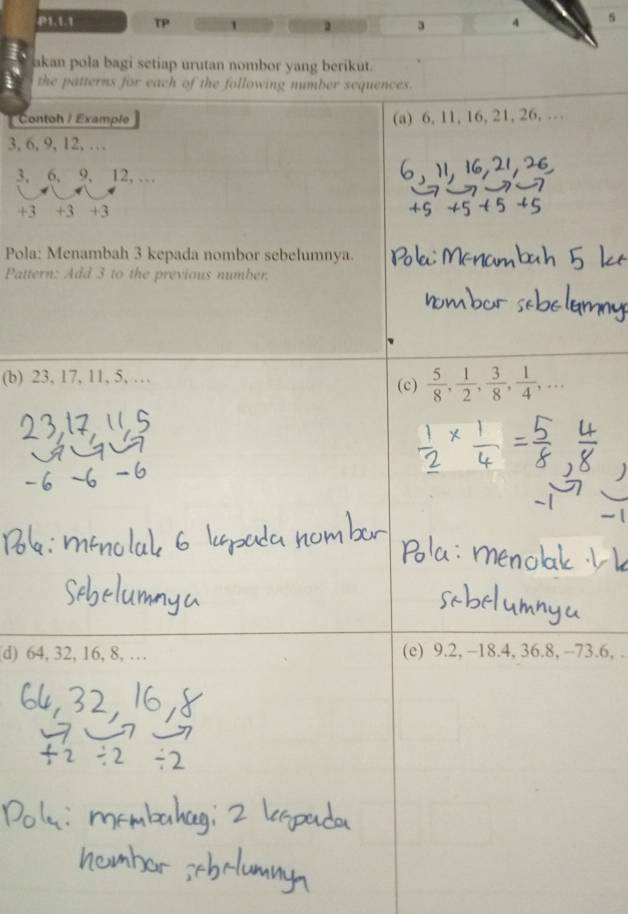 P1.1.1 TP 1 2 3 4 5
akan pola bagi setiap urutan nombor yang berikut.
the patterns for each of the following number sequences.
Contoh / Example
3, 6, 9, 12, …
3, 6, 9, 12, …
+3 +3 +3
Pola: Menambah 3 kepada nombor sebelumnya.
Pattern: Add 3 to the previous number.
(a) 6, 11, 16, 21, 26, …
6, 11, 16, 21, 26,
+5 +5 +5 +5
Pola: Menambah 5 ke
nombor sebelumny
(b) 23, 17, 11, 5, …
23, 17, 11, 5
-6 -6 -6
Pola: menolak 6 kepada nombor
sebelumnya
(c) 5/8, 1/2, 3/8, 1/4, …
1/2 × 1/4 = 5/8, 4/8,
-1 -1
Pola: menolak
sebelumnya
(d) 64, 32, 16, 8, …
64, 32, 16, 8
÷2 ÷2 ÷2
Pola: membahagi 2 kepada
nombor sebelumnya
(e) 9.2, –18.4, 36.8, –73.6, .